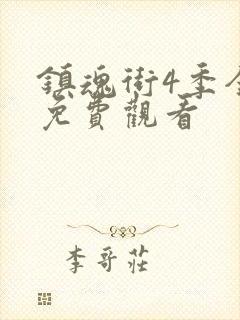 鎮魂街4季全
免費觀看
李哥莊